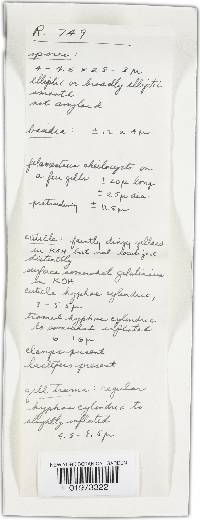 R. 749
spores:
4 - 4.6 x 2.8 - 3 µ
elliptic or broadly elliptic
smooth
not amyloid
basidia: ± 12 x 4 µ
filamentous cheilocysts on
a few gills ± 20µ long
± 2.5µ dia.
protruding ± 11.5µ
cuticle: faintly dingy yellow
in KOH but not localized
distinctly
surface somewhat gelatinous
in KOH
cuticle hyphae cylindric,
3 - 5.5µ
tramal hyphae cylindric
to somewhat inflated
6 16µ
clamps present
lactifers present
gill trama: regular
hyphae cylindric to
slightly inflated
4.5 - 8.5µ
NEW YORK BOTANICAL GARDEN
01973322